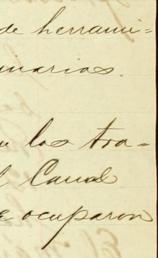 de herrami-
inarios.
n los tra-
l Canal
e ocuparon